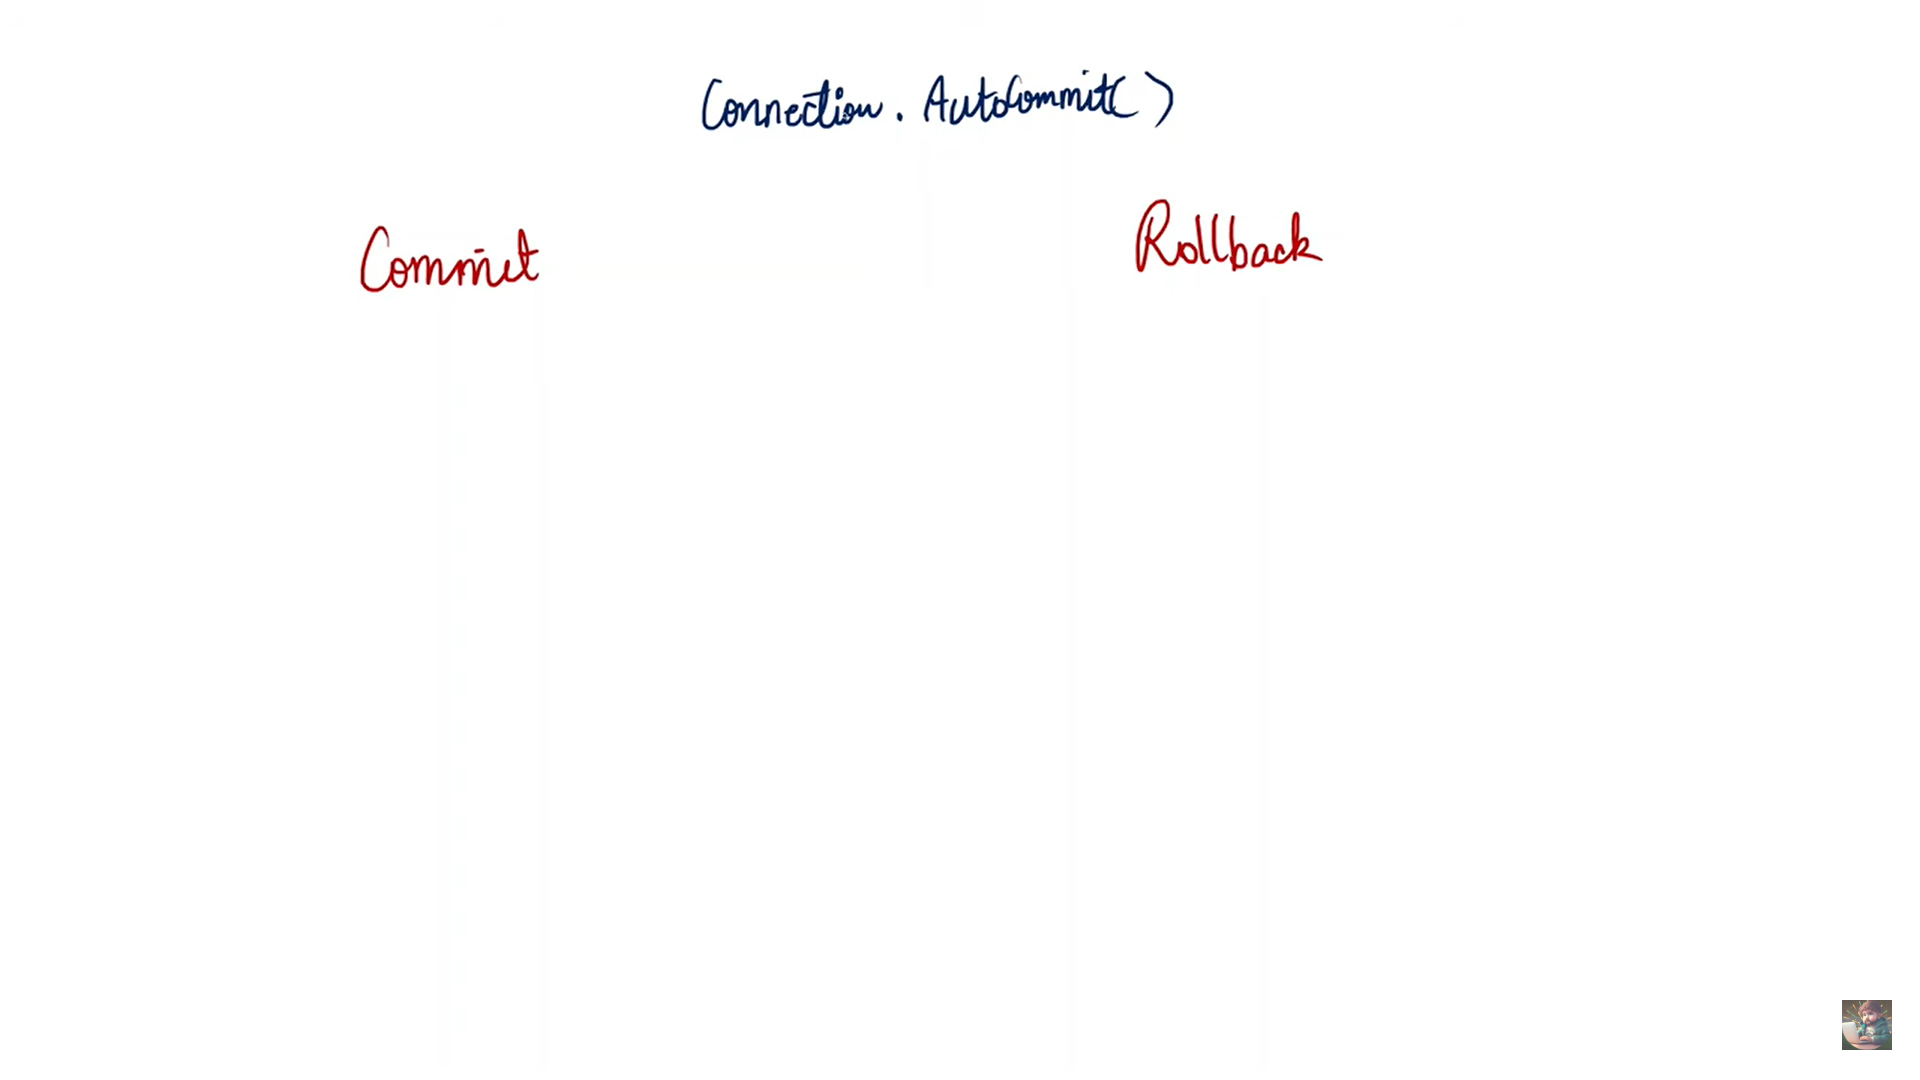 Connection. AutoCommit()
Commit
Rollback